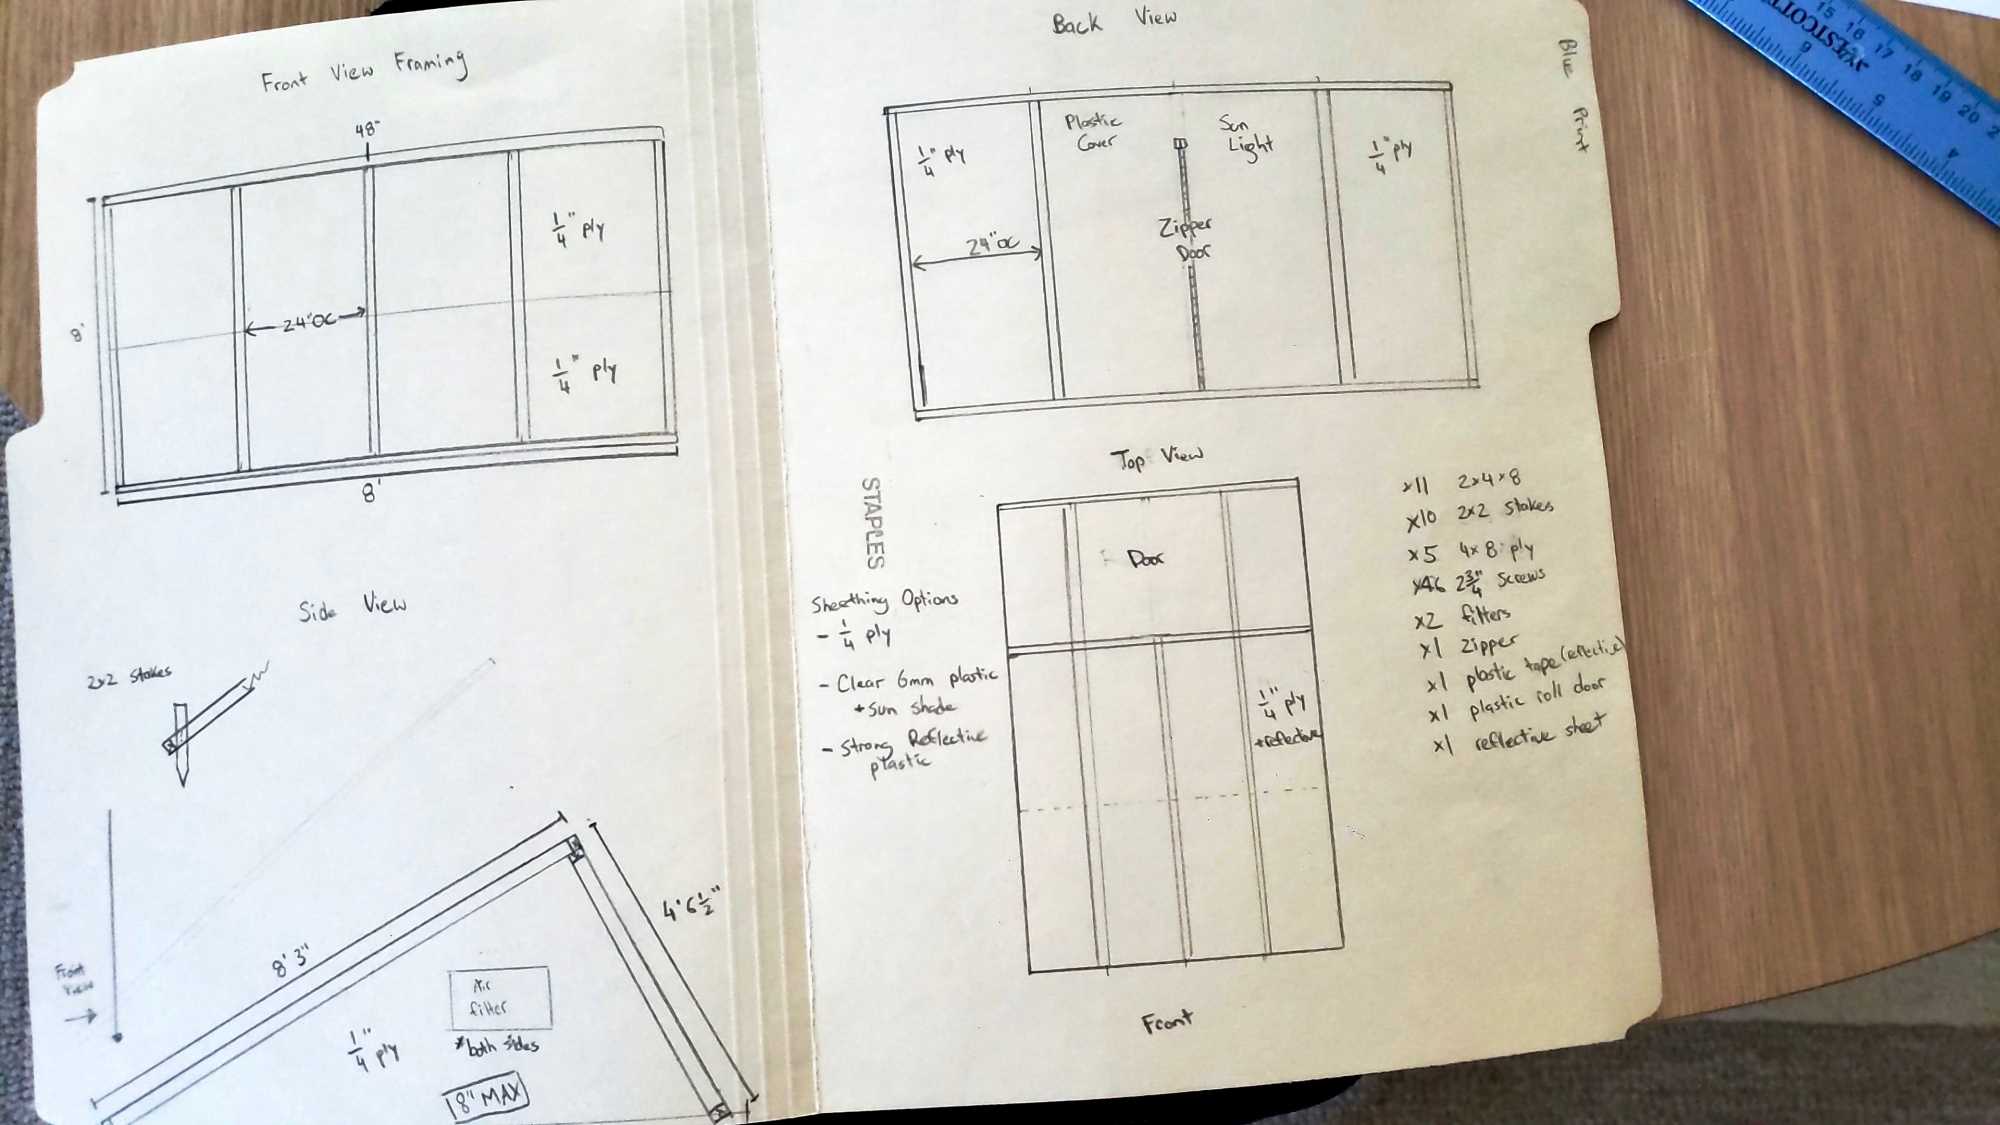 Front View Framing
48"
8'
24"OC
1/4" ply
1/4" ply
8'
Side View
2x2 Stakes
8'3"
4'6 1/2"
Front
View
Air
filter
*both sides
1/4" ply
18" MAX
Back View
Blue Print
1/4" ply
Plastic
Cover
Sun
Light
1/4" ply
24"OC
Zipper
Door
STAPLES
Sheething Options
- 1/4 ply
- Clear 6mm plastic
+ Sun shade
- Strong Reflective
plastic
Top View
Door
1/4" ply
+reflective
Front
x11 2x4x8
x10 2x2 Stakes
x5 4x8 ply
x46 2 3/4" Screws
x2 filters
x1 Zipper
x1 plastic tape (reflective)
x1 plastic roll door
x1 reflective sheet
WESTCOTT
15 16 17 18 19 20 2
6 5 4